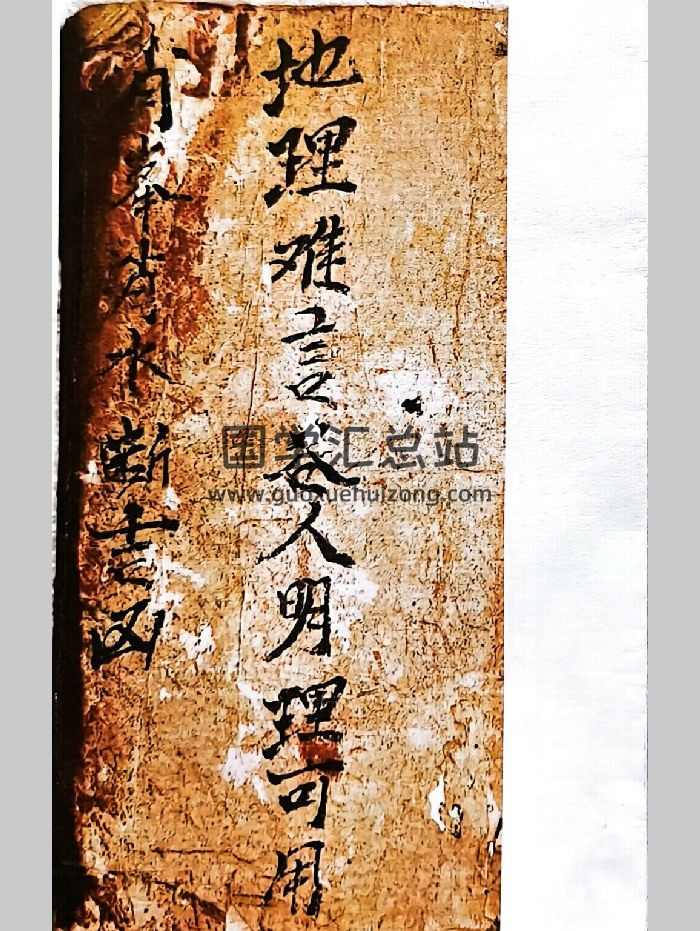 地理难言人明理可用
肖峯肖水断吉凶
国学汇总站
www.guoxuehuizong.com